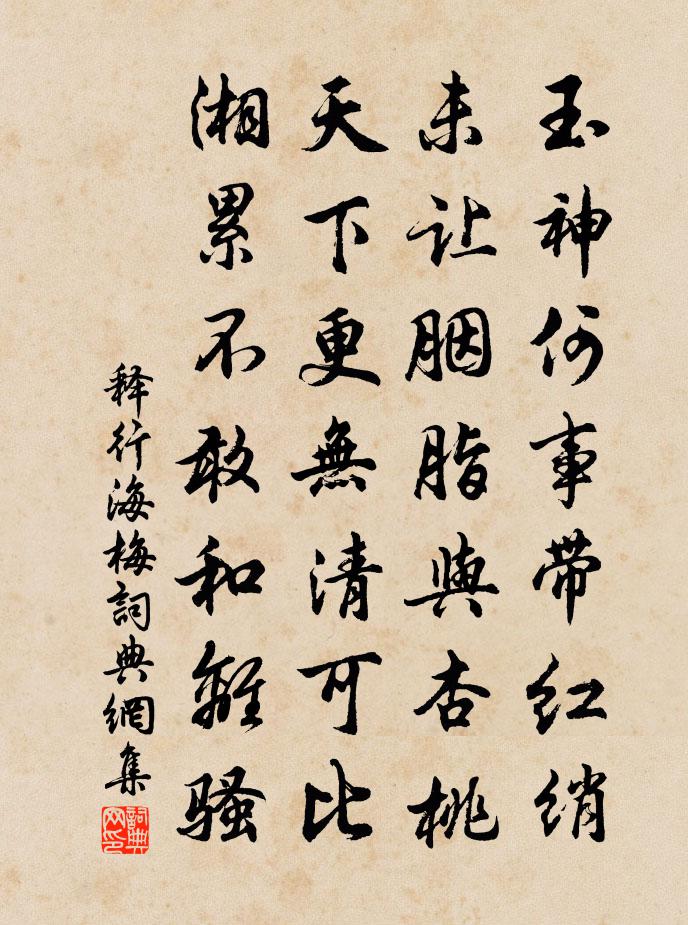 玉神何事带红绡
未让胭脂與杏桃
天下更無清可比
湘累不敢和離骚
释行海梅詞典網集
詞典網印